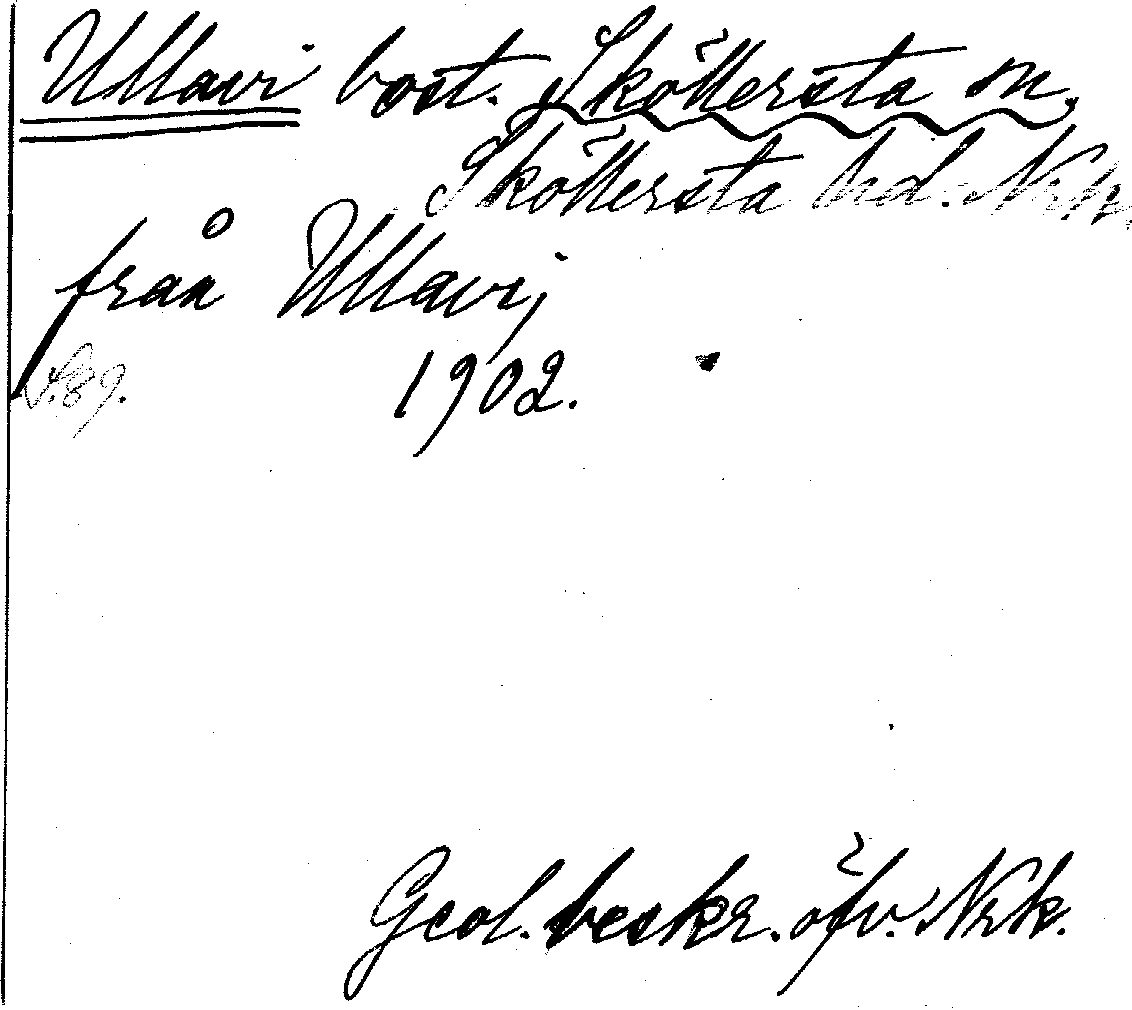 Ullavi bost. Sköllersta sn.
Sköllersta hd. Nrk.
från Ullavi,
S. 89. 1902.
Geol. beskr. öfv. Nrk.